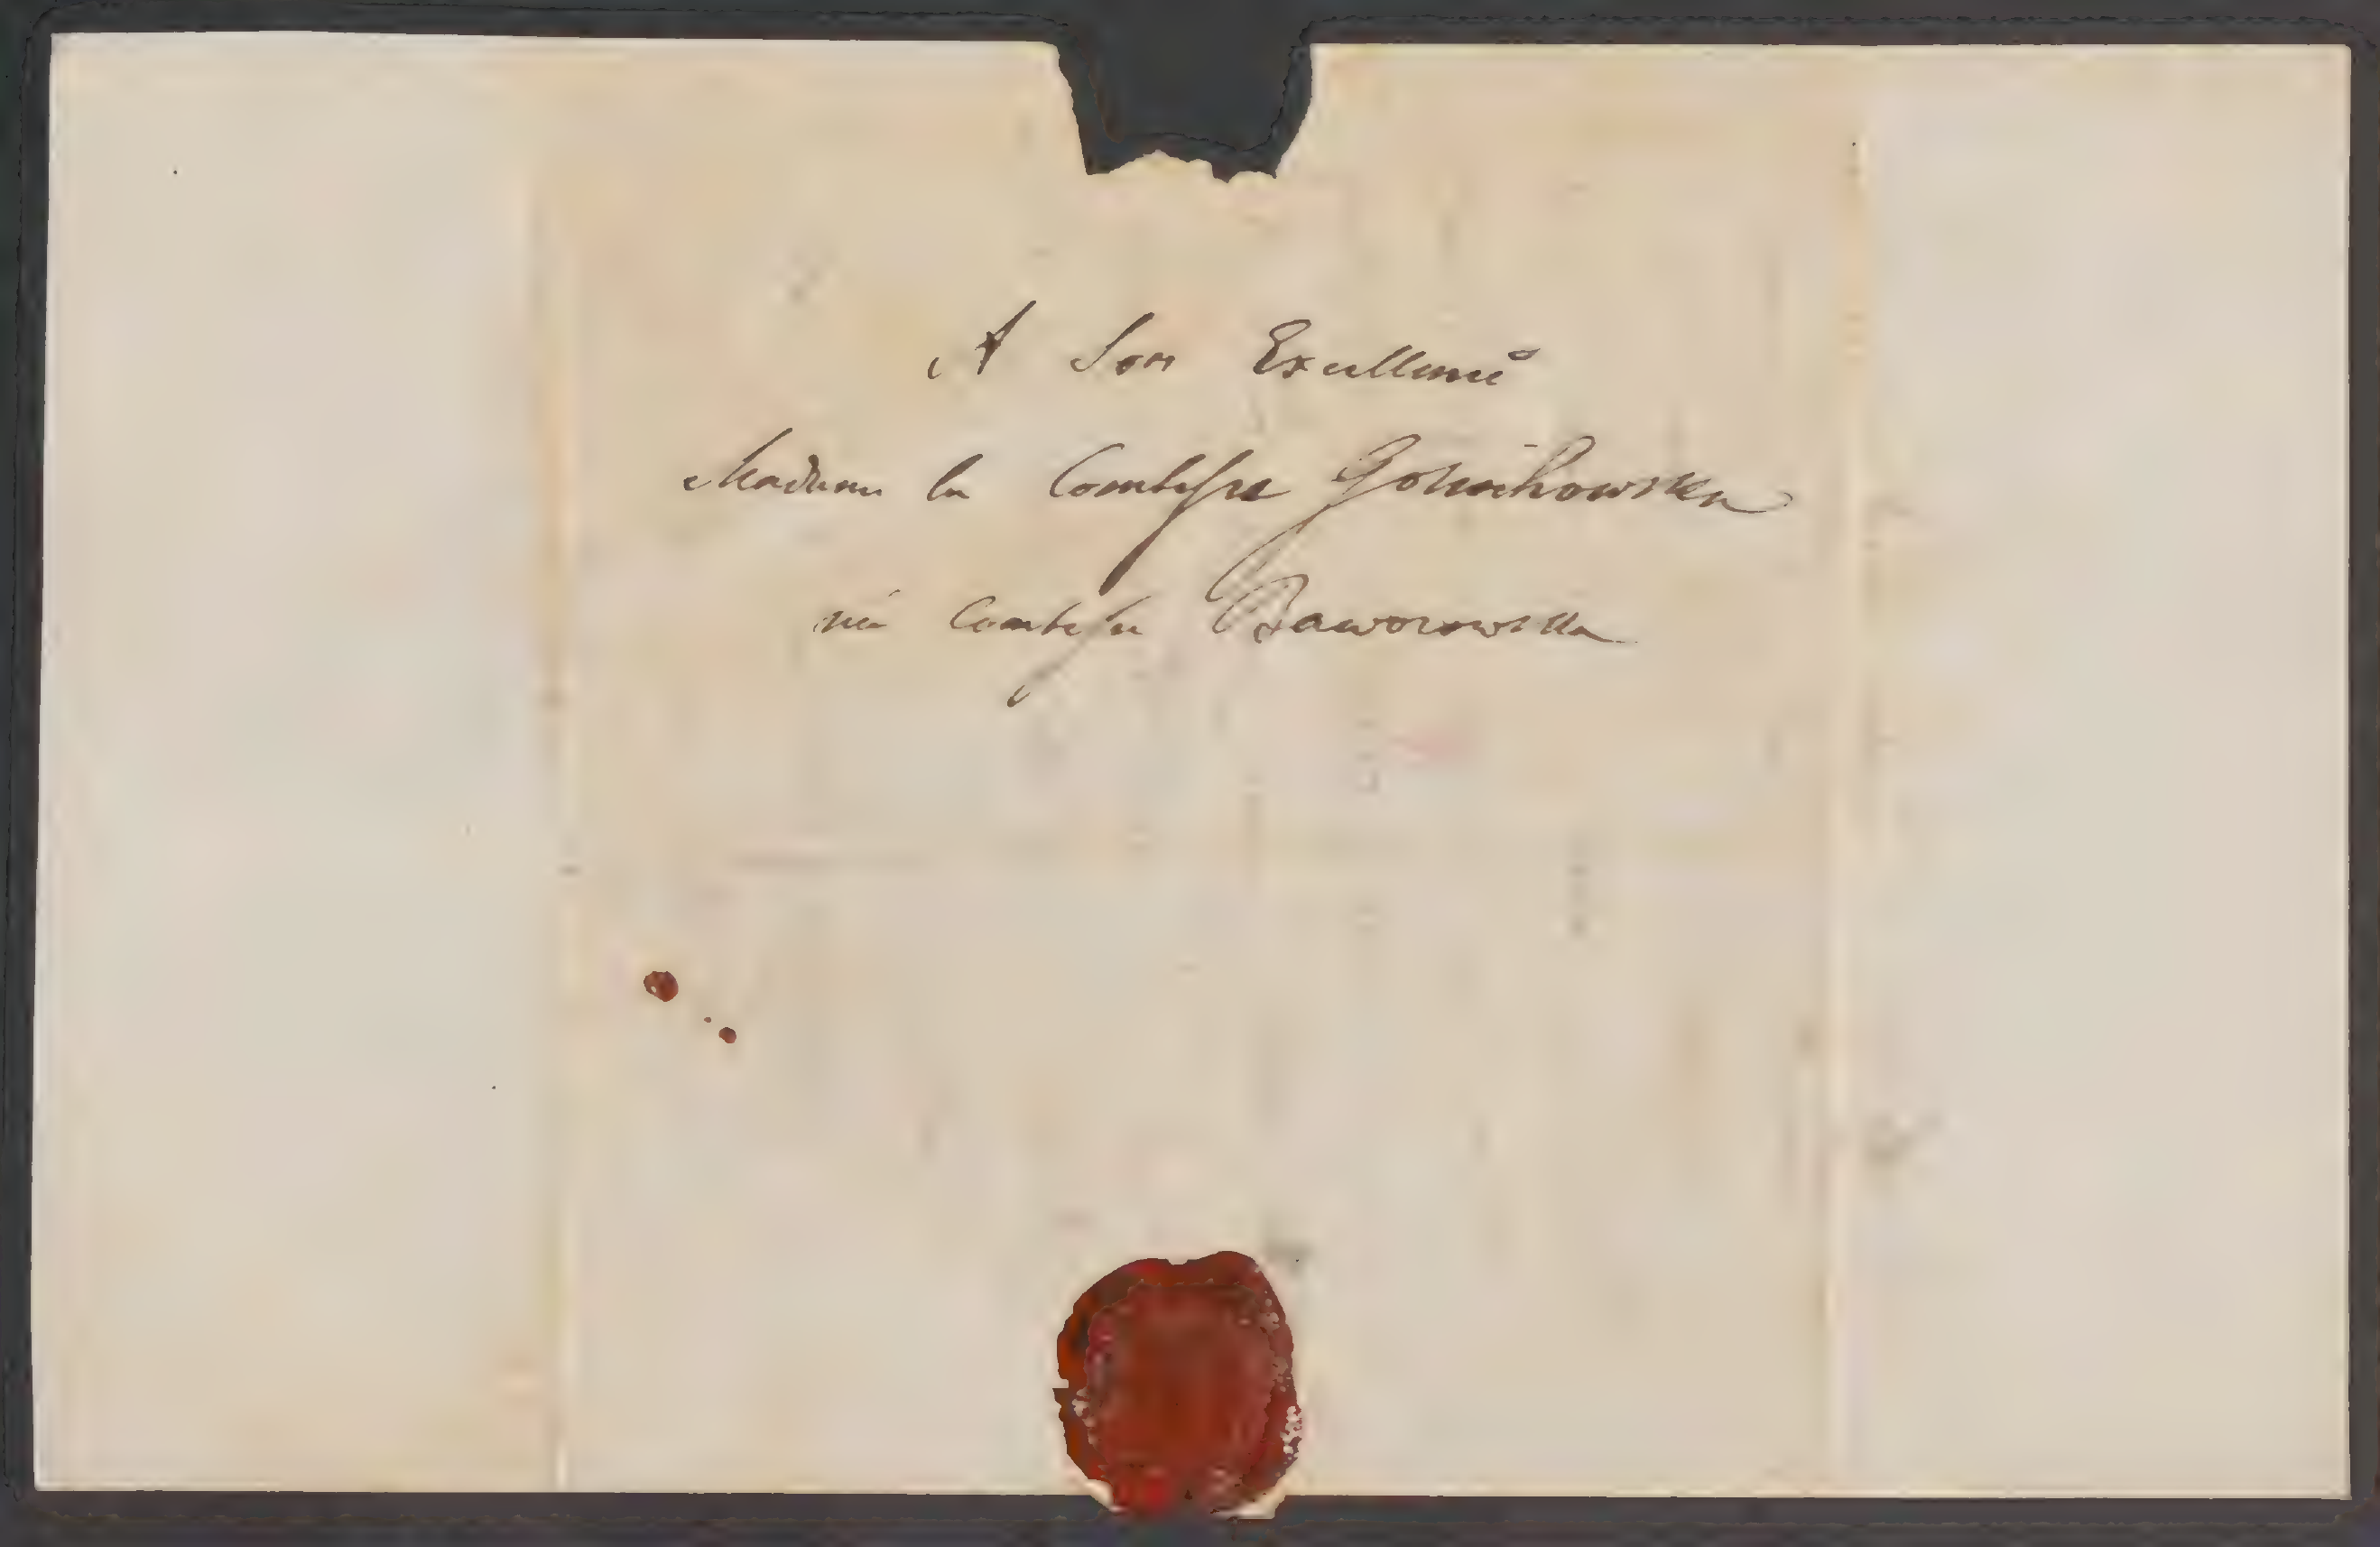 A Son Excellence
Madame la Comtesse Gołuchowska
née Comtesse Baworowska